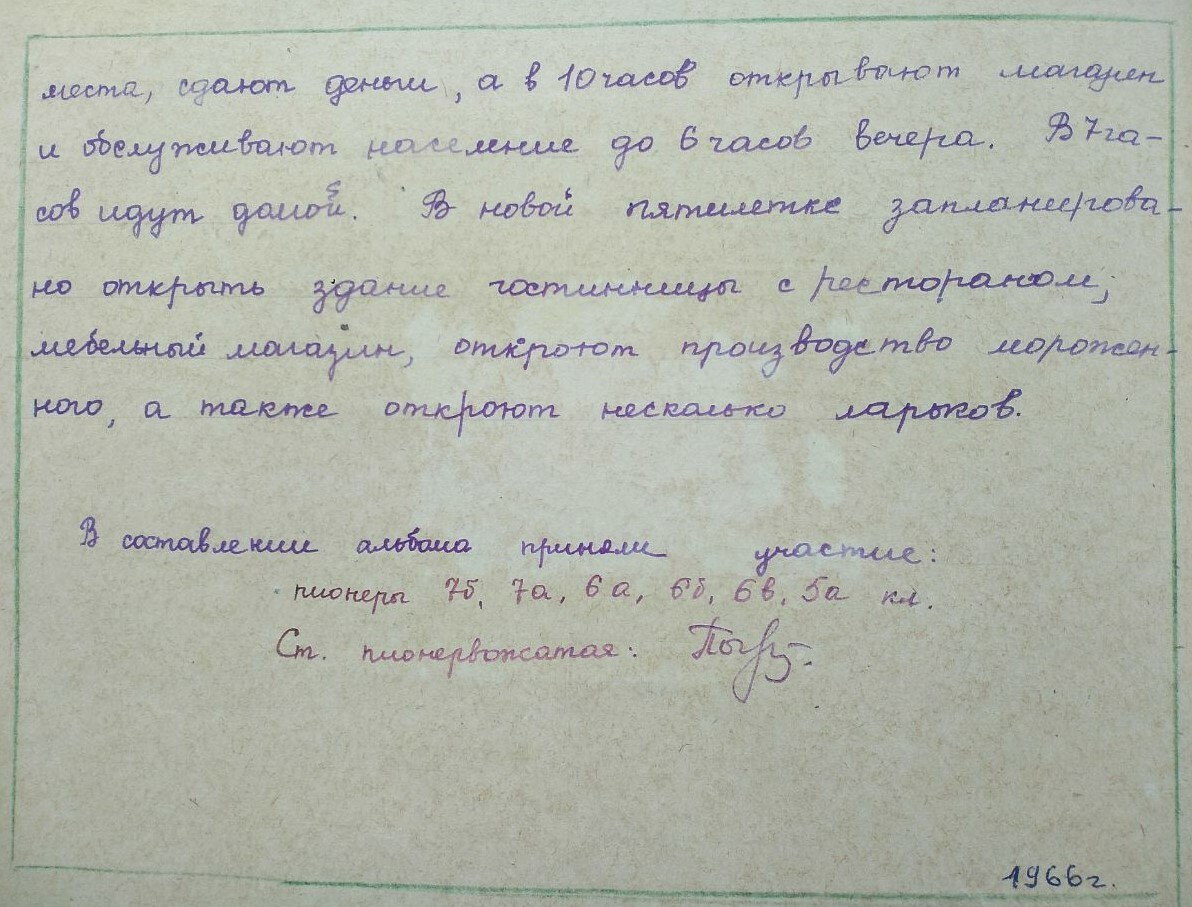 места, сдают деньги, а в 10 часов открывают магазин
и обслуживают население до 6 часов вечера. В 7 ча-
сов идут домой. В новой пятилетке запланирова-
но открыть здание гостинницы с рестораном,
мебельный магазин, откроют производство морожен-
ного, а также откроют несколько ларьков.
В составлении альбома приняли участие:
пионеры 7б, 7а, 6а, 6б, 6в, 5а кл.
Ст. пионервожатая:
1966г.